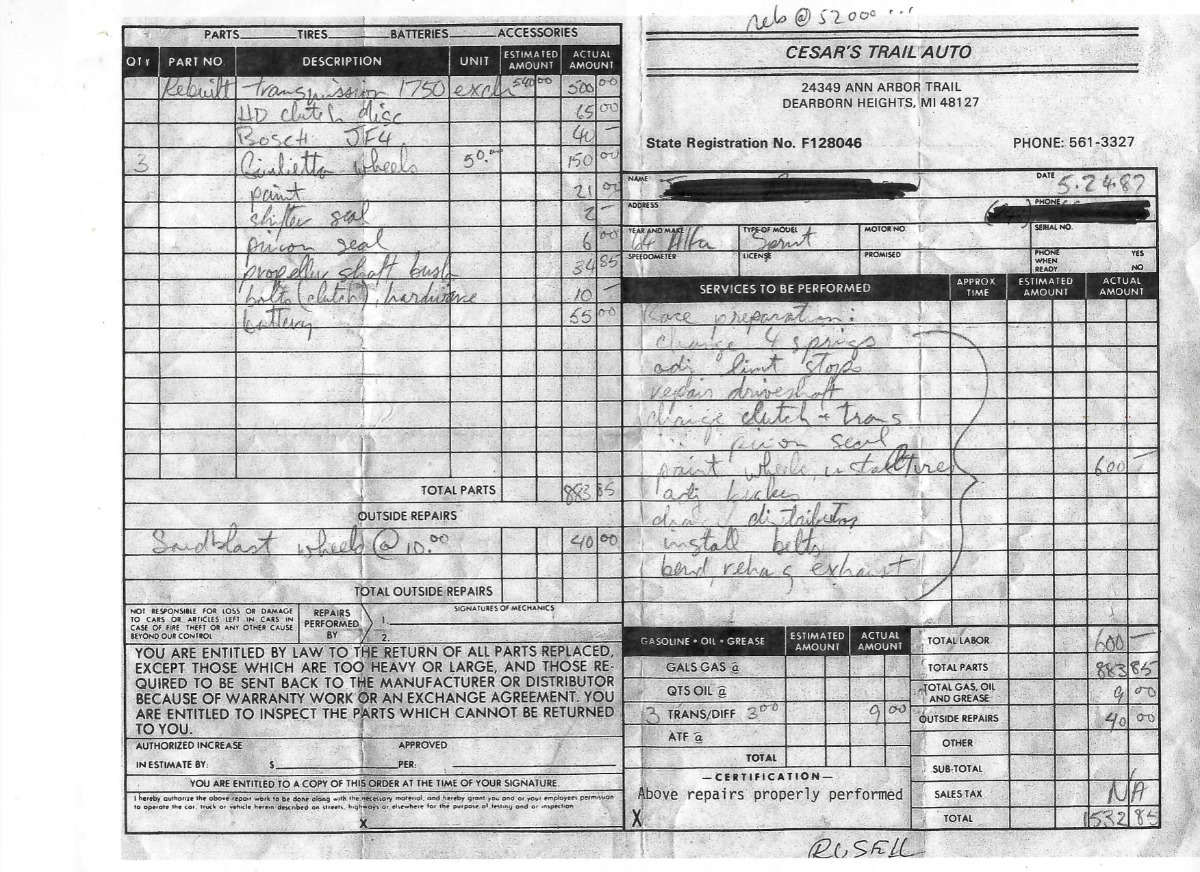 reb @ 52000 ...
PARTS TIRES BATTERIES ACCESSORIES
QTY PART NO. DESCRIPTION UNIT ESTIMATED AMOUNT ACTUAL AMOUNT
Rebuilt transmission 1750 exch 540 00 500 00
HD clutch disc 65 00
Bosch JF4 40 —
3 Giulietta wheels 50.00 150 00
paint 21 00
shifter seal 2 —
pinion seal 6 00
propeller shaft bush 34 85
bolts (clutch), hardware 10 —
battery 55 00
TOTAL PARTS 883 85
OUTSIDE REPAIRS
Sandblast wheels @ 10.00 40 00
TOTAL OUTSIDE REPAIRS
NOT RESPONSIBLE FOR LOSS OR DAMAGE
TO CARS OR ARTICLES LEFT IN CARS IN
CASE OF FIRE, THEFT OR ANY OTHER CAUSE
BEYOND OUR CONTROL
REPAIRS
PERFORMED
BY
SIGNATURES OF MECHANICS
1.
2.
YOU ARE ENTITLED BY LAW TO THE RETURN OF ALL PARTS REPLACED,
EXCEPT THOSE WHICH ARE TOO HEAVY OR LARGE, AND THOSE RE-
QUIRED TO BE SENT BACK TO THE MANUFACTURER OR DISTRIBUTOR
BECAUSE OF WARRANTY WORK OR AN EXCHANGE AGREEMENT. YOU
ARE ENTITLED TO INSPECT THE PARTS WHICH CANNOT BE RETURNED
TO YOU.
AUTHORIZED INCREASE APPROVED
IN ESTIMATE BY: $ PER:
YOU ARE ENTITLED TO A COPY OF THIS ORDER AT THE TIME OF YOUR SIGNATURE.
I hereby authorize the above repair work to be done along with the necessary material, and hereby grant you and or your employees permission
to operate the car, truck or vehicle herein described on streets, highways or elsewhere for the purpose of testing and or inspection
X
CESAR'S TRAIL AUTO
24349 ANN ARBOR TRAIL
DEARBORN HEIGHTS, MI 48127
State Registration No. F128046 PHONE: 561-3327
NAME DATE 5.24.87
ADDRESS PHONE
YEAR AND MAKE 64 Alfa TYPE OF MODEL Sprint MOTOR NO. SERIAL NO.
SPEEDOMETER LICENSE PROMISED PHONE WHEN READY YES NO
SERVICES TO BE PERFORMED APPROX TIME ESTIMATED AMOUNT ACTUAL AMOUNT
Race preparation:
change 4 springs
adj limit stops
repair driveshaft
change clutch + trans
... pinion seal
paint wheels, install tires 600 —
adj brakes
distributor
install belts
bend, rehang exhaust
GASOLINE • OIL • GREASE ESTIMATED AMOUNT ACTUAL AMOUNT
GALS GAS @
QTS OIL @
3 TRANS/DIFF 3 00 9 00
ATF @
TOTAL
—CERTIFICATION—
Above repairs properly performed
X
TOTAL LABOR 600 —
TOTAL PARTS 883 85
TOTAL GAS, OIL AND GREASE 9 00
OUTSIDE REPAIRS 40 00
OTHER
SUB-TOTAL
SALES TAX NA
TOTAL 1532 85
RUSELL